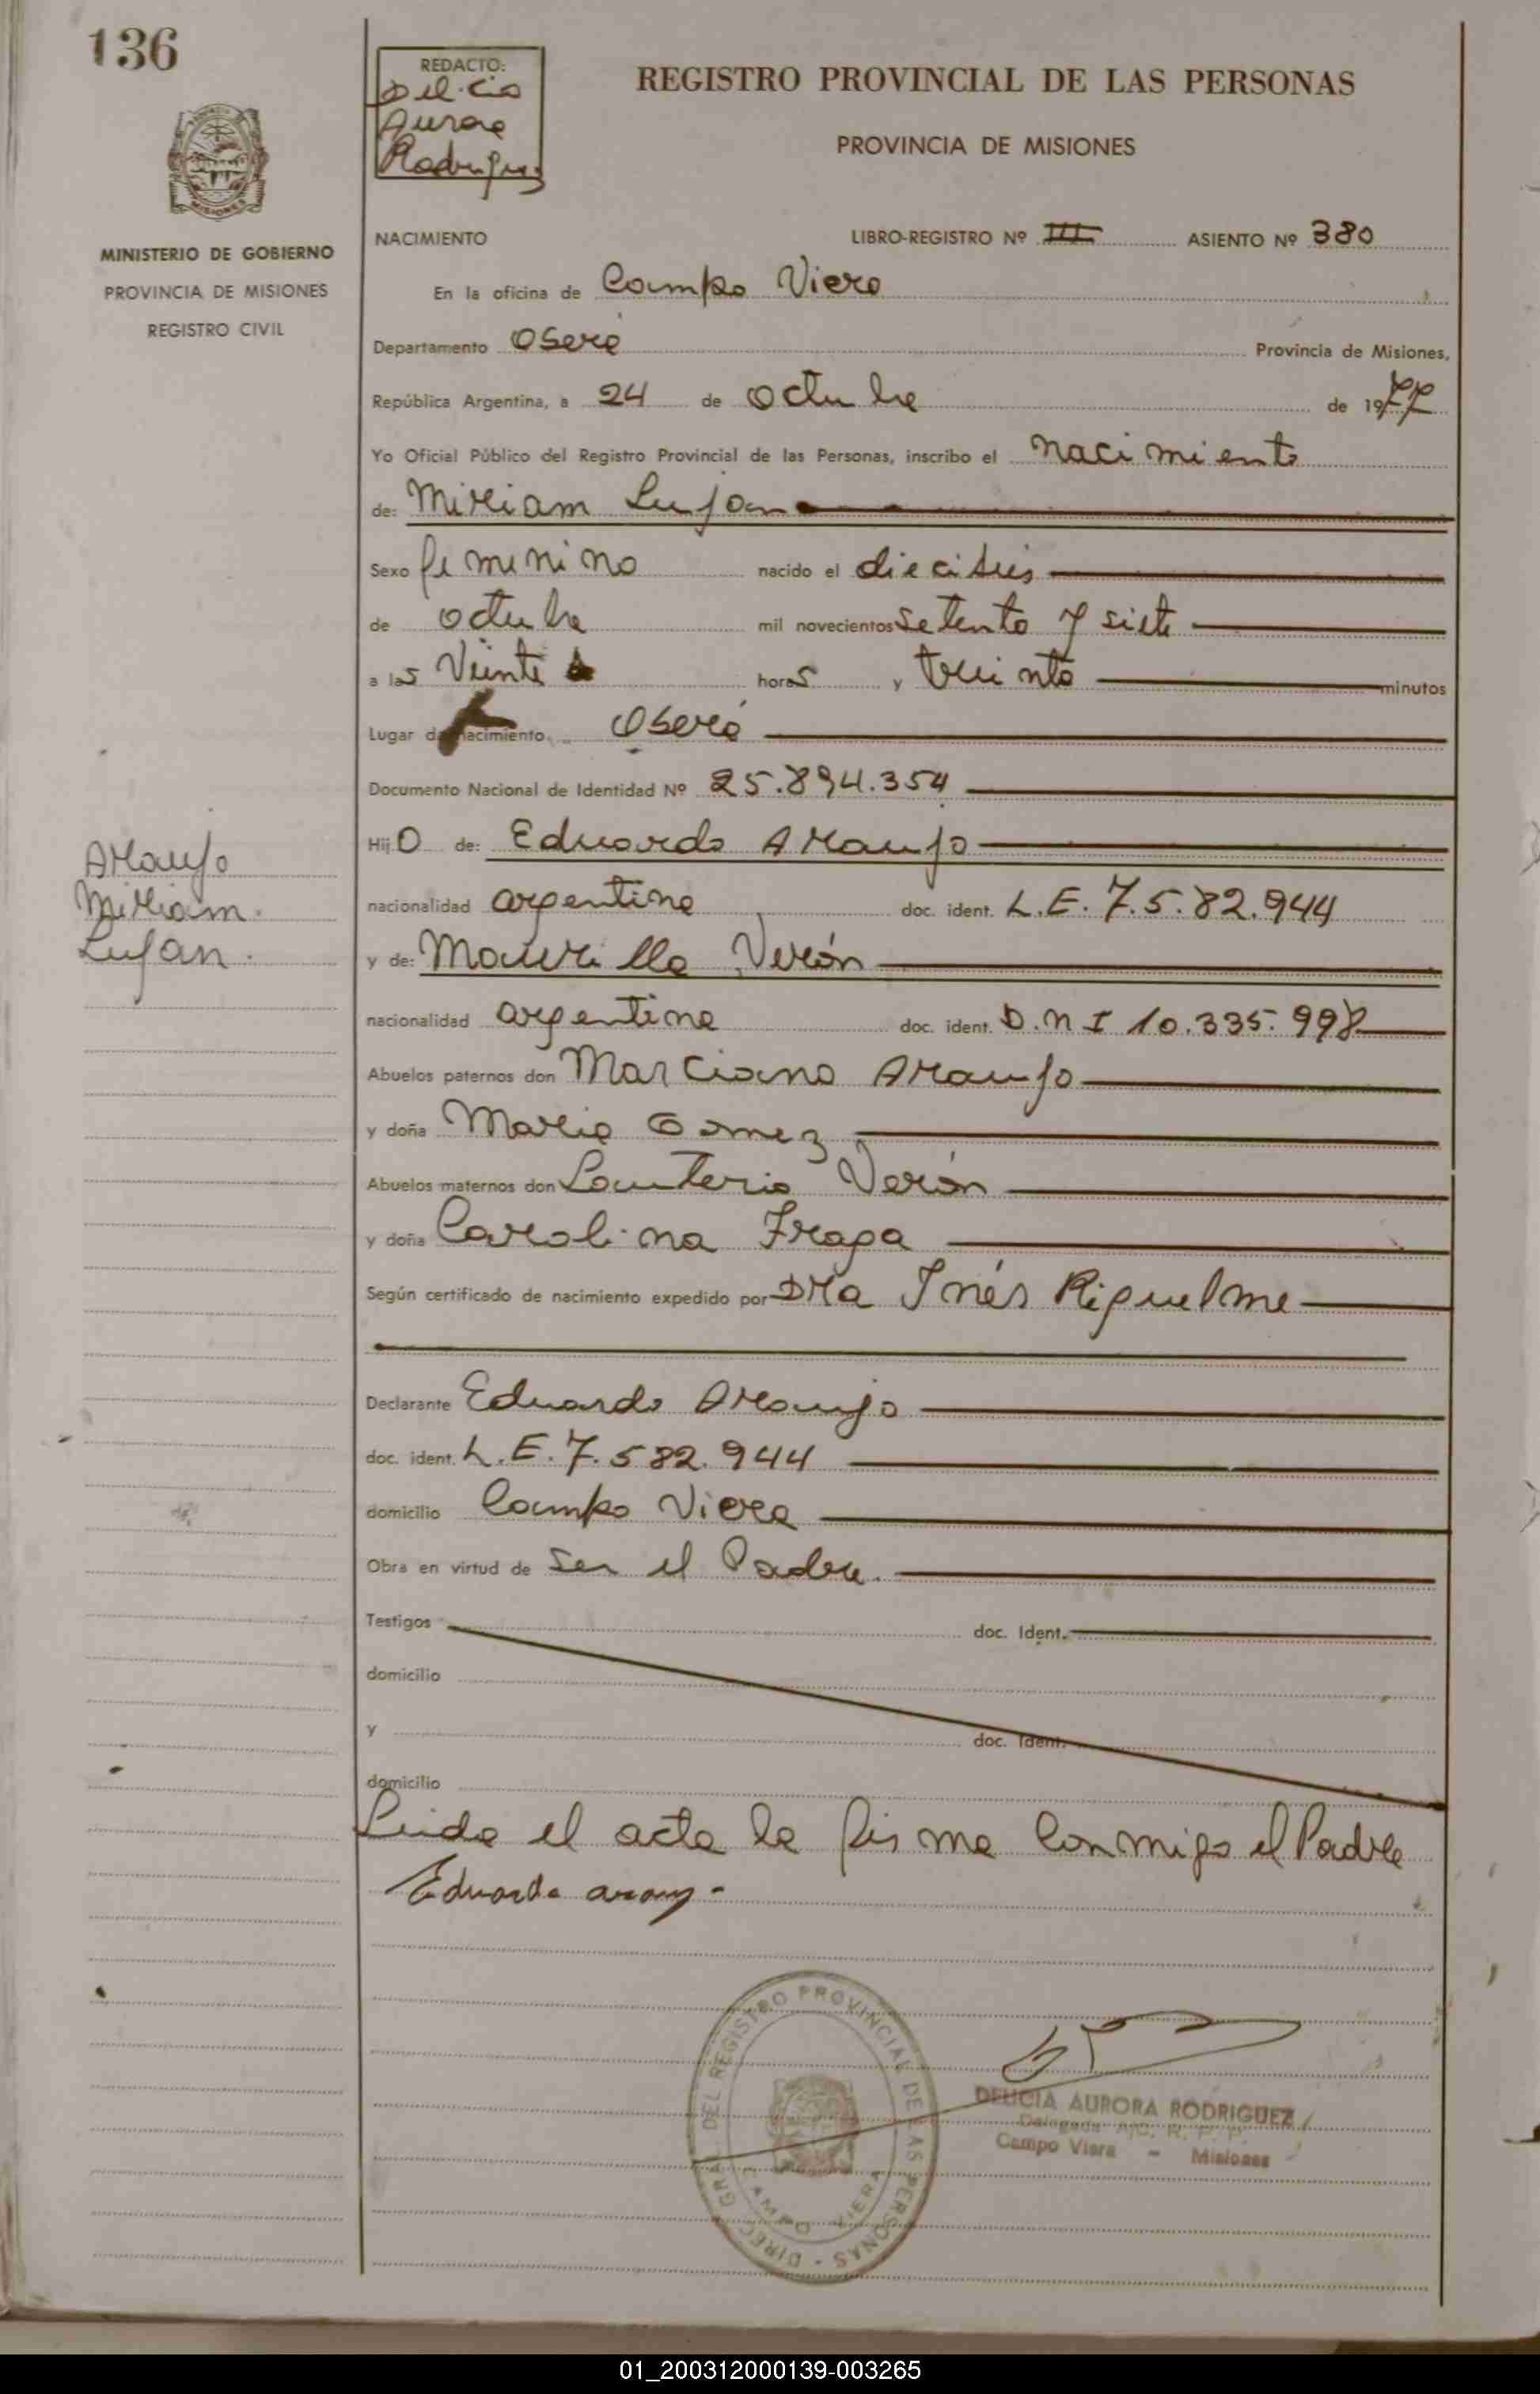 136
REDACTO:
Delicia
Aurora
Rodriguez
REGISTRO PROVINCIAL DE LAS PERSONAS
PROVINCIA DE MISIONES
MISIONES
MINISTERIO DE GOBIERNO
PROVINCIA DE MISIONES
REGISTRO CIVIL
NACIMIENTO LIBRO-REGISTRO Nº III ASIENTO Nº 380
En la oficina de Campo Viera
Departamento Oberá Provincia de Misiones,
República Argentina, a 24 de octubre de 1977
Yo Oficial Público del Registro Provincial de las Personas, inscribo el nacimiento
de: Mirian Lujan
Sexo femenino nacido el dieciseis
de octubre mil novecientos setenta y siete
a las veinte horas y treinta minutos
Lugar de nacimiento Oberá
Documento Nacional de Identidad Nº 25.894.354
Hijo de: Eduardo Araujo
Araujo
Miriam.
Lujan.
nacionalidad argentina doc. ident. L.E. 7.5.82.944
y de: Maurilla Verón
nacionalidad argentina doc. ident. D.N I 10.335.998
Abuelos paternos don Marciano Araujo
y doña Maria Gomez
Abuelos maternos don Lauterio Verón
y doña Carolina Fraga
Según certificado de nacimiento expedido por Dra Inés Riquelme
Declarante Eduardo Araujo
doc. ident. L.E. 7.582.944
domicilio Campo Viera
Obra en virtud de ser el Padre.
Testigos doc. Ident.
domicilio
y doc. Ident.
domicilio
Leida el acta la firma conmigo el Padre
Eduardo
DIREC. GRAL. DEL REGISTRO PROVINCIAL DE LAS PERSONAS -
CAMPO VIERA
DELICIA AURORA RODRIGUEZ
Delegada A/C. R. P. P.
Campo Viera - Misiones
01_200312000139-003265